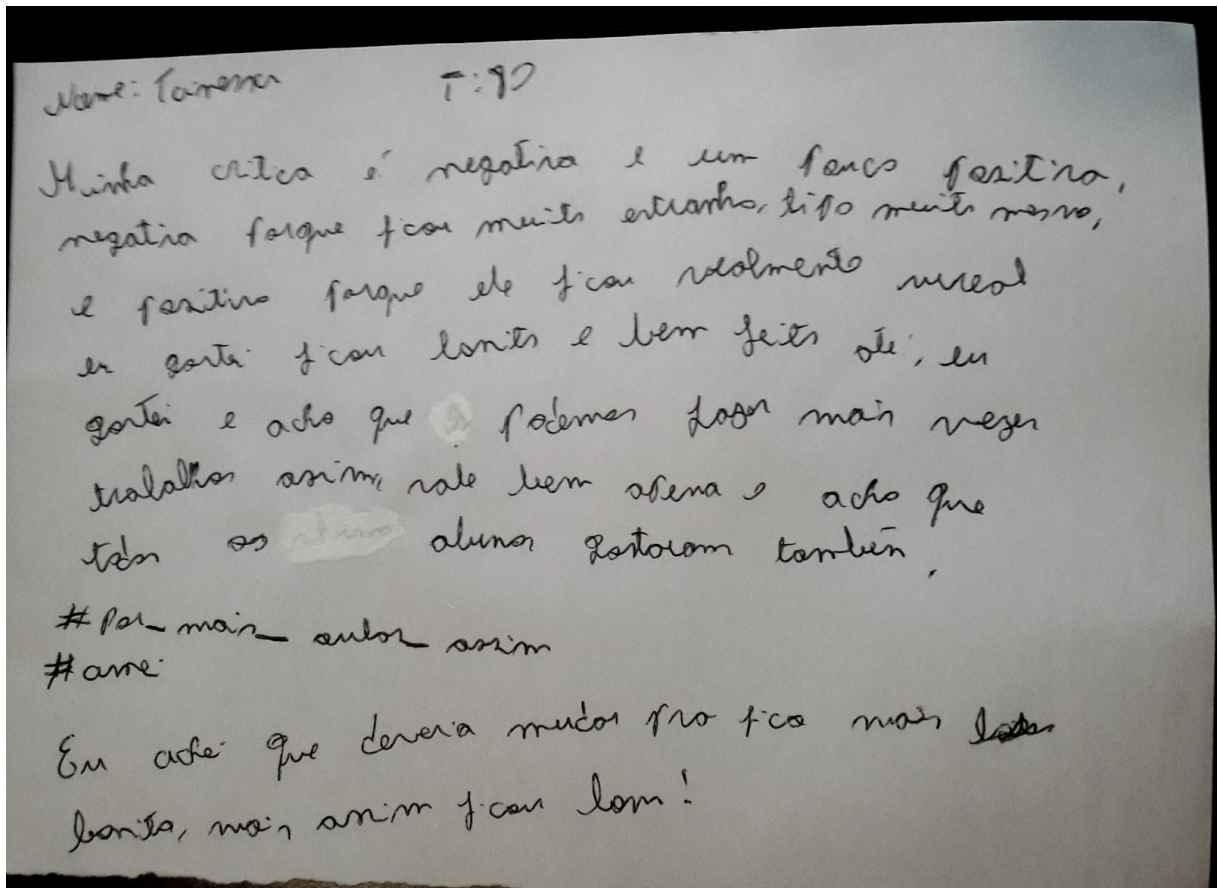 Nome: Tainessa T:90
Minha crítica é negativa e um pouco positiva,
negativa porque ficou muito estranho, tipo muito mesmo,
e positivo porque ele ficou realmente surreal
eu gostei ficou bonito e bem feito até, eu
gostei e acho que podemos fazer mais vezes
trabalhos assim, vale bem apena e acho que
todos os alunos gostaram também,
#Por_mais_aulas_assim
#amei
Eu achei que deveria mudar pra fica mais
bonito, mais assim ficou bom!